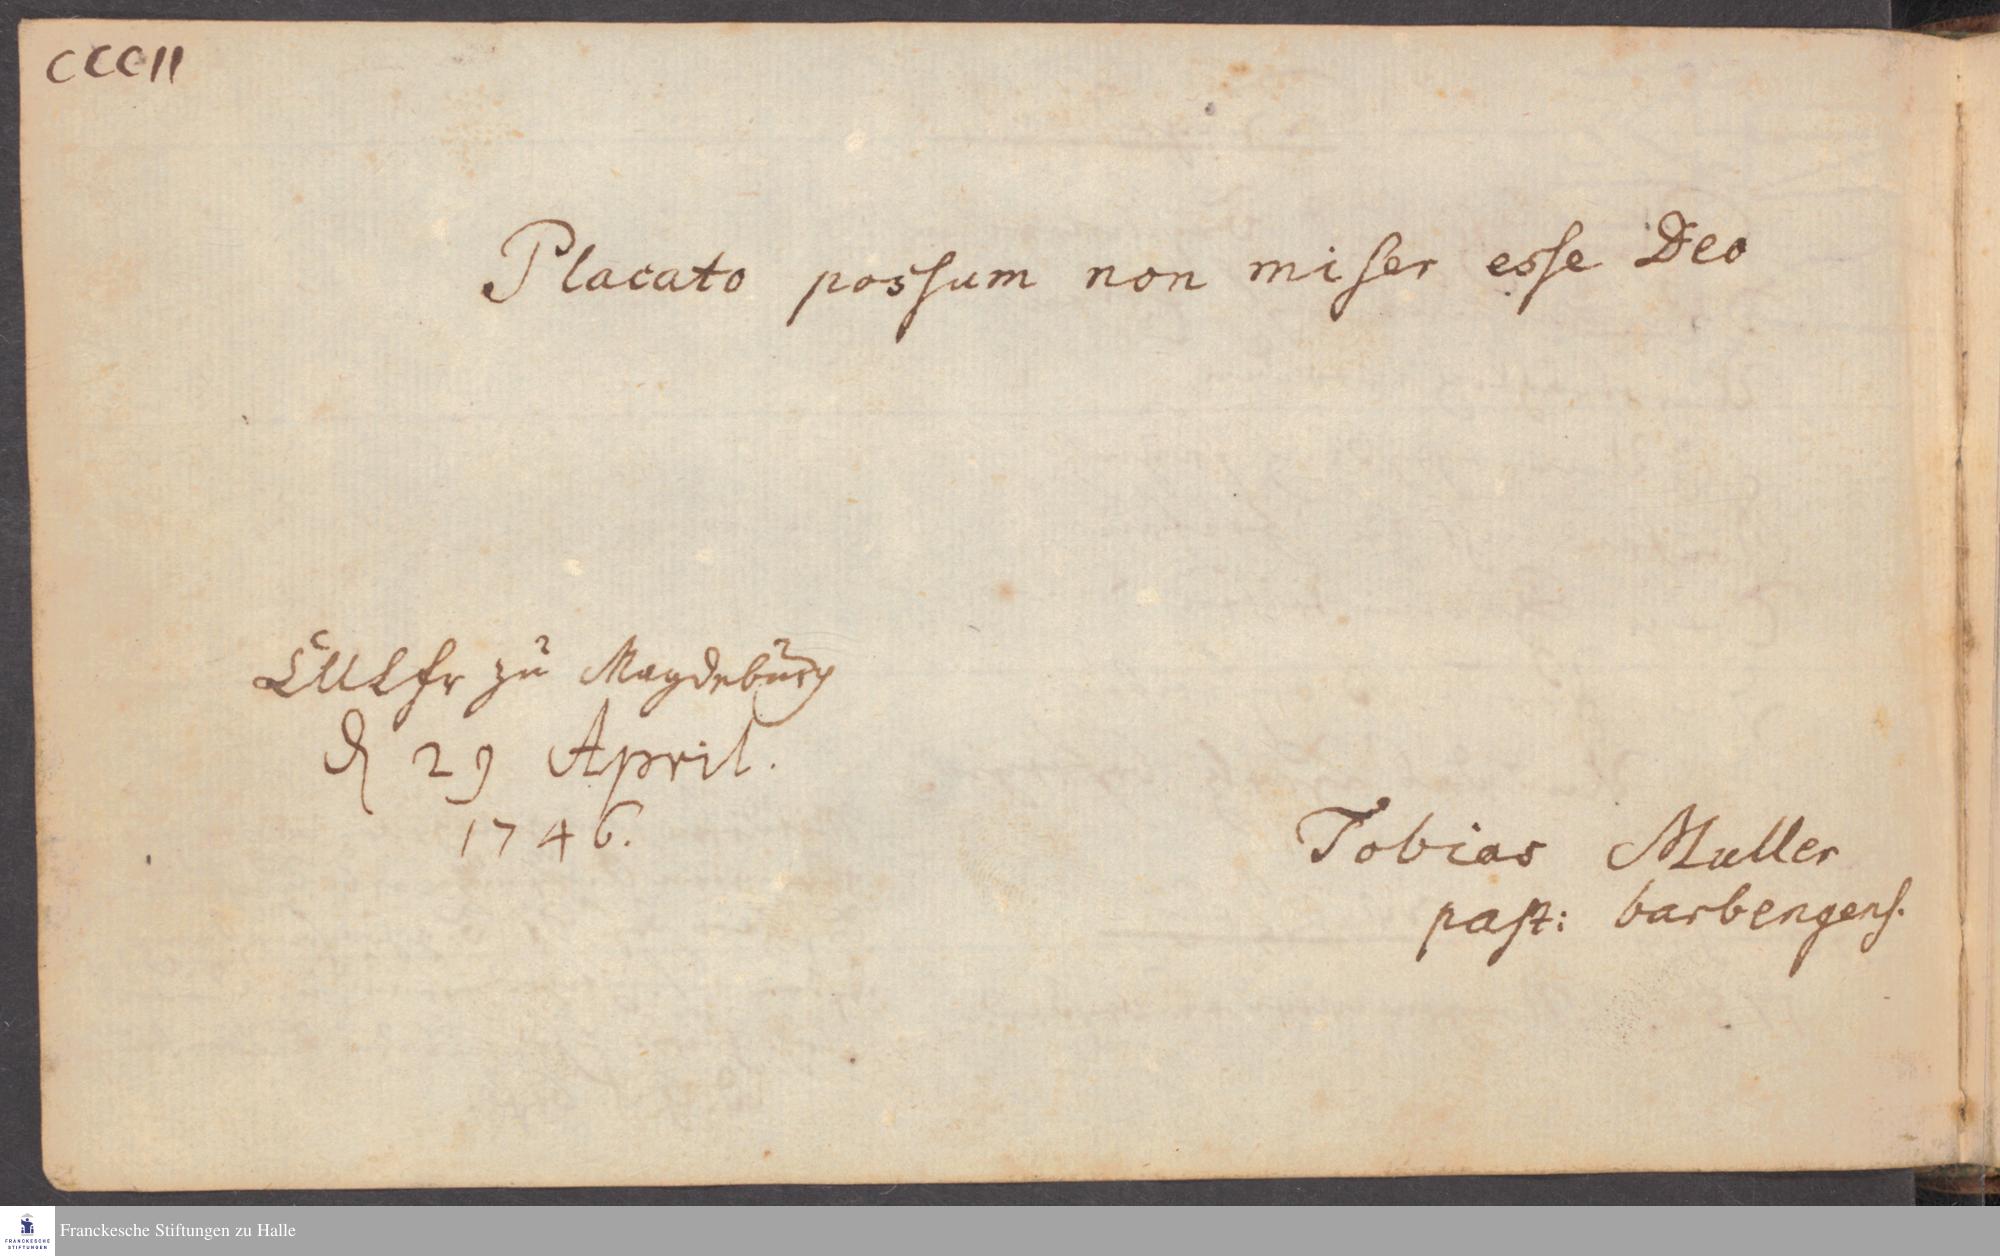 CCCII
Placato possum non miser esse Deo
zu Magdeburg
d 29 April.
1746.
Tobias Muller
past: barbengens.
Franckesche Stiftungen zu Halle
FRANCKESCHE
STIFTUNGEN